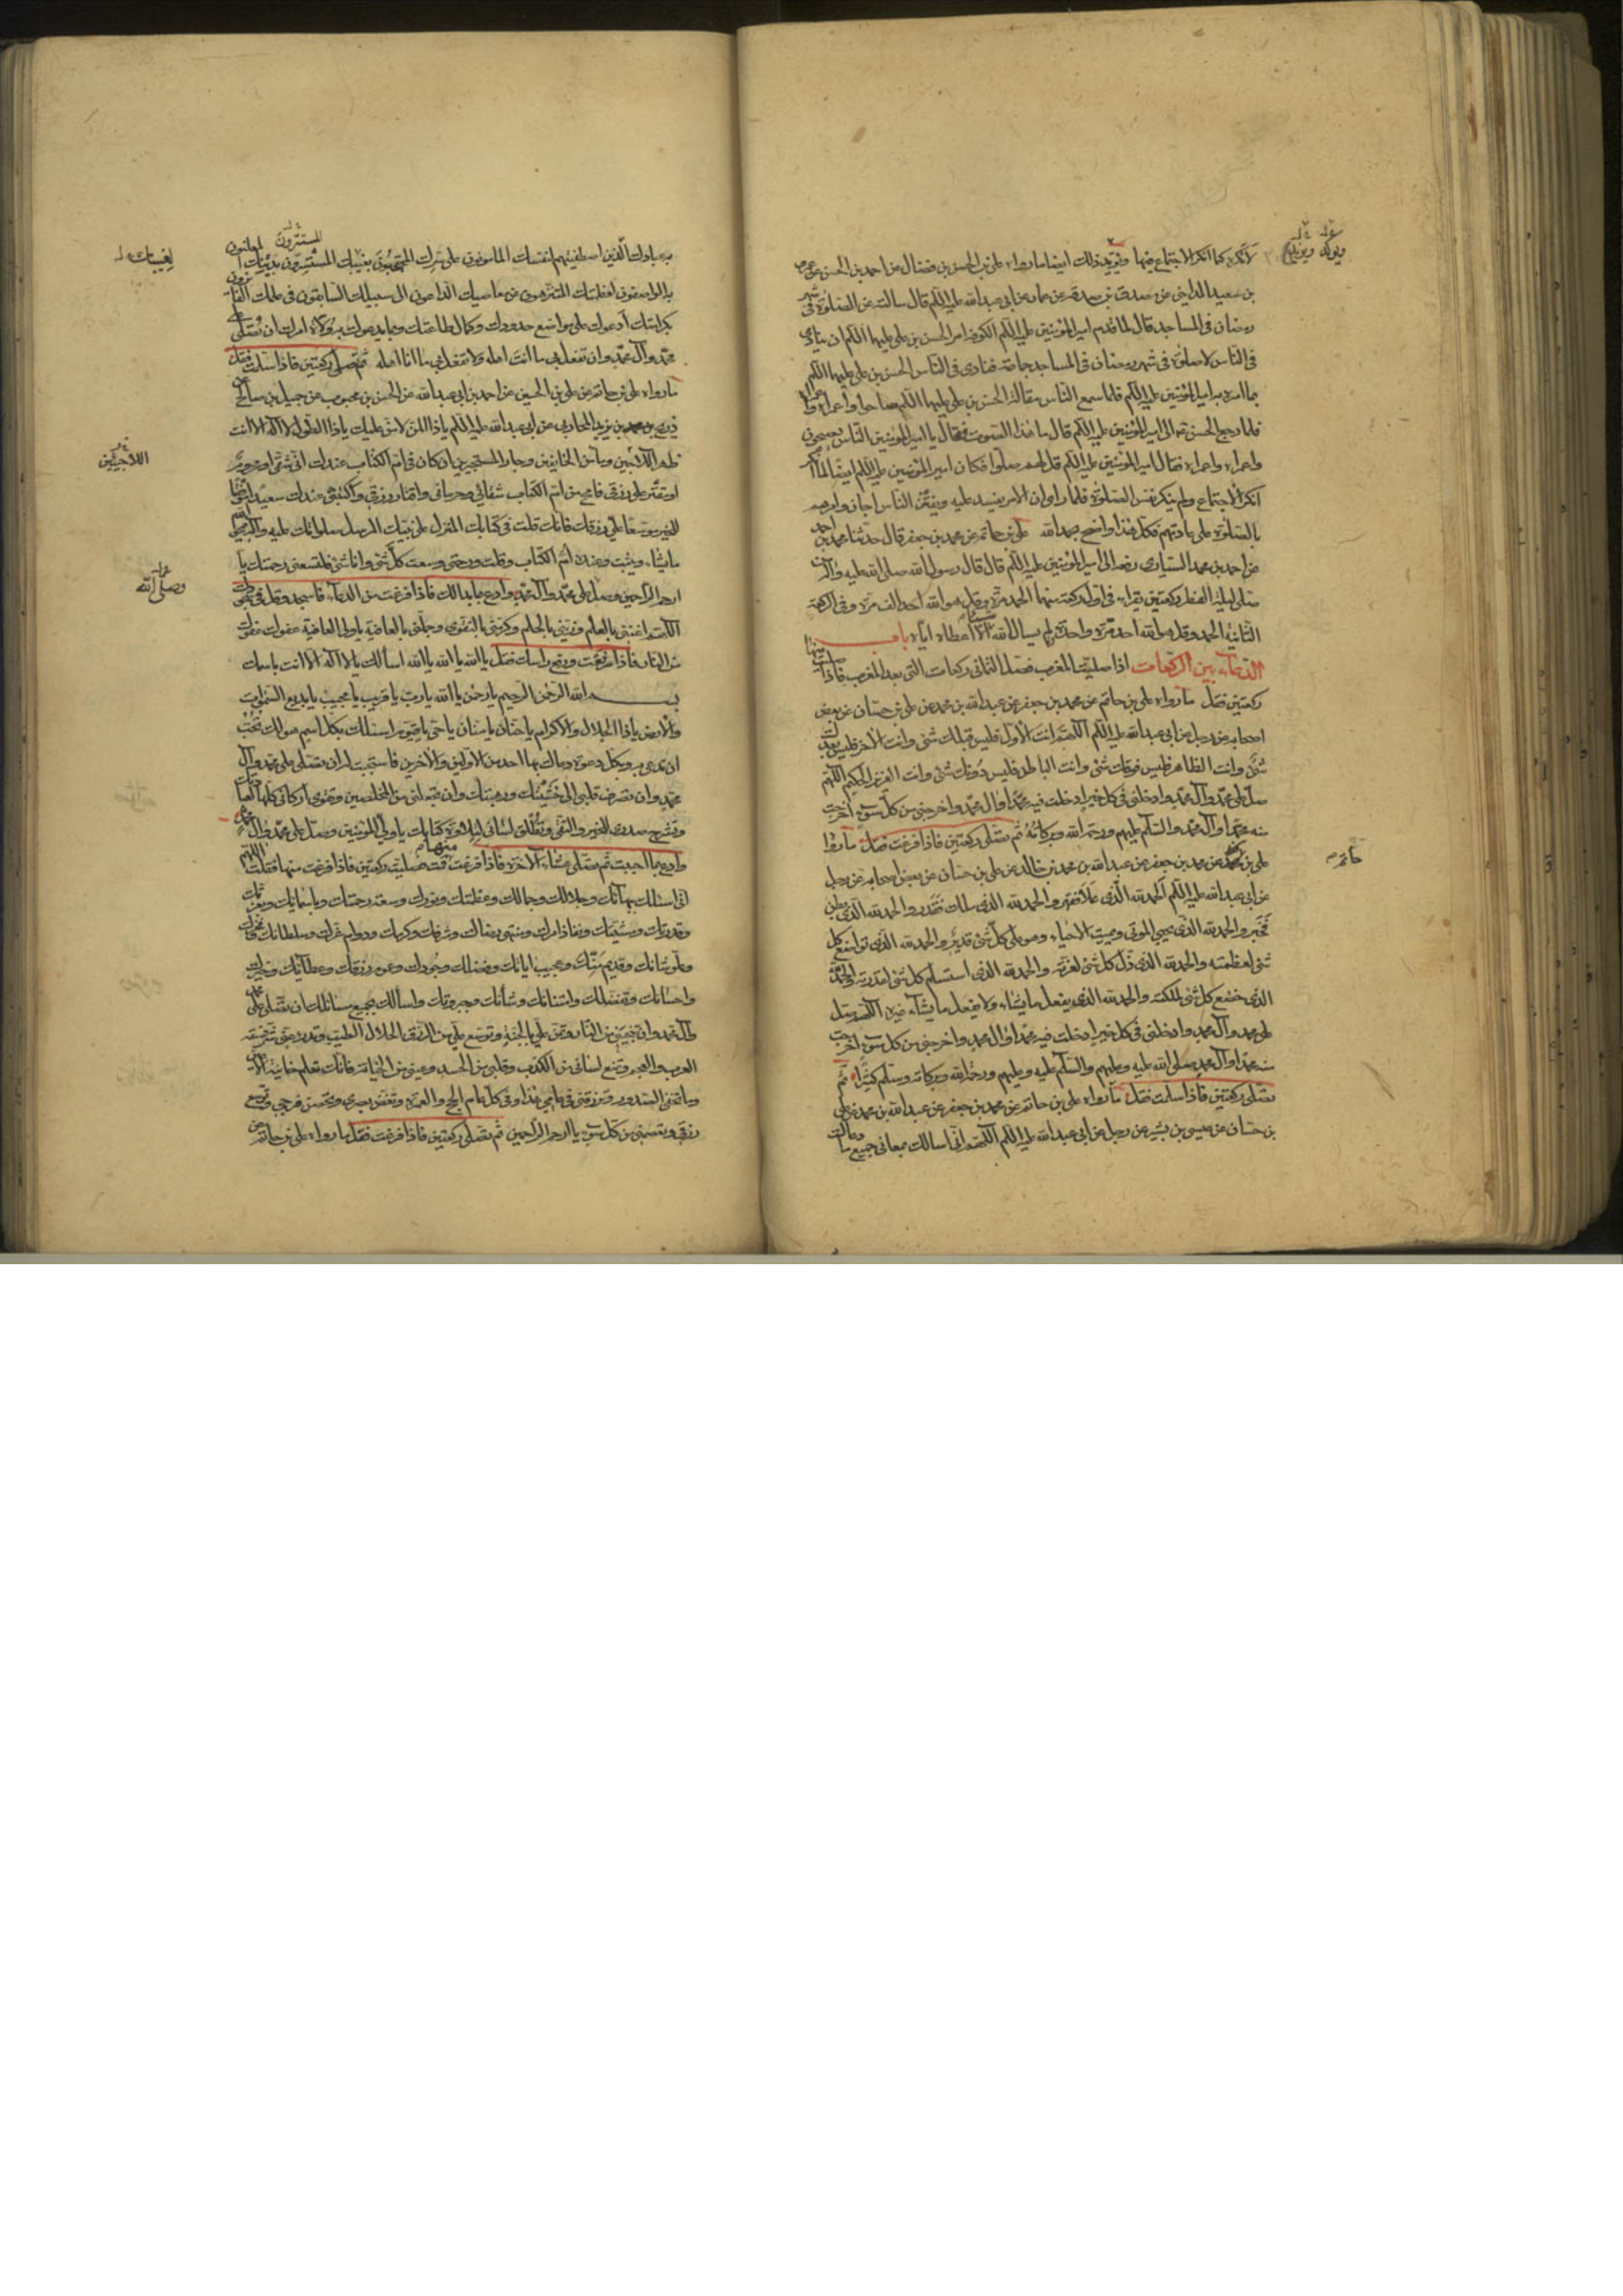 لانكره كما انكر الاجتماع فيها ويؤيد ذلك ايضا ما رواه علي بن الحسن بن فضال عن احمد بن الحسن عن عمرو
بن سعيد المدايني عن مصدق بن صدقه عن عمار عن ابي عبد الله عليه السلم قال سالته عن الصلوة في شهر
رمضان في المساجد قال لما قدم امير المؤمنين عليه السلم الكوفه امر الحسن بن علي عليهما السلم ان ينادي
في الناس لا صلوة في شهر رمضان في المساجد جماعة فنادى في الناس الحسن بن علي عليهما السلم
بما امره به امير المؤمنين عليه السلم فلما سمع الناس مقالة الحسن بن علي عليهما السلم صاحوا واعمراه واعمراه
فلما رجع الحسن ع الى امير المؤمنين عليه السلم قال ما هذا الصوت فقال يا امير المؤمنين الناس يصيحون
واعمراه واعمراه فقال امير المؤمنين عليه السلم قل لهم صلوا فكان امير المؤمنين عليه السلم ايضا لما انكر
انكر الاجتماع ولم ينكر نفس الصلوة فلما راى ان الامر يفسد عليه ويفتتن الناس اجاز وامرهم
بالصلوة على عادتهم فكل هذا واضح بحمد الله علي بن حاتم عن محمد بن جعفر قال حدثنا محمد بن احمد
عن احمد بن محمد السياري رفعه الى امير المؤمنين عليه السلم قال قال رسول الله صلى الله عليه وآله من
صلى ليلة الفطر ركعتين يقراء في اول ركعة منهما الحمد مرة وقل هو الله احد الف مرة وفي الركعة
الثانية الحمد وقل هو الله احد مرة واحدة لم يسال الله شيئا الا اعطاه اياه باب
الدعاء بين الركعات اذا صليت المغرب فصل الثماني ركعات التي بعد المغرب فاذا صليت منها
ركعتين فقل ما رواه علي بن حاتم عن محمد بن جعفر عن عبد الله بن محمد عن علي بن حسان عن بعض
اصحابه عن رجل عن ابي عبد الله عليه السلم اللهم انت الاول فليس قبلك شئ وانت الاخر فليس بعدك
شئ وانت الظاهر فليس فوقك شئ وانت الباطن فليس دونك شئ وانت العزيز الحكيم اللهم
صل على محمد وآل محمد وادخلني في كل خير ادخلت فيه محمدا وآل محمد واخرجني من كل سوء اخرجت
منه محمدا وآل محمد والسلم عليهم ورحمة الله وبركاته ثم تصلي ركعتين فاذا فرغت فقل ما رواه
علي بن حاتم عن محمد بن جعفر عن عبد الله بن محمد بن خالد عن علي بن حسان عن بعض اصحابه عن رجل
عن ابي عبد الله عليه السلم الحمد لله الذي علا فقهر والحمد لله الذي ملك فقدر والحمد لله الذي بطن
فخبر والحمد لله الذي يحيي الموتى ويميت الاحياء وهو على كل شئ قدير والحمد لله الذي تواضع كل
شئ لعظمته والحمد لله الذي ذل كل شئ لعزته والحمد لله الذي استسلم كل شئ لقدرته والحمد لله
الذي خضع كل شئ لملكته والحمد لله الذي يفعل ما يشاء ولا يفعل ما يشاء غيره اللهم صل
على محمد وآل محمد وادخلني في كل خير ادخلت فيه محمدا وآل محمد واخرجني من كل سوء اخرجت
منه محمدا وآل محمد صلى الله عليه وعليهم والسلم عليه وعليهم ورحمة الله وبركاته وسلم كثيرا ثم
تصلي ركعتين فاذا سلمت فقل ما رواه علي بن حاتم عن محمد بن جعفر عن عبد الله بن محمد عن علي
بن حسان عن عيسى بن بشير عن رجل عن ابي عبد الله عليه السلم اللهم اني اسالك بمعاني جميع ما دعاك
حاتم
به عبادك الذين اصطفيتهم لنفسك المامونون على سرك المحتجبون بغيبك المستسرون بدينك المعلنون
به الواصفون لعظمتك المتنزهون عن معاصيك الداعون الى سبيلك السابقون في علمك الفائزون
بكرامتك ادعوك على مواضع حدودك وكمال طاعتك وبما يدعوك به ولاة امرك ان تصلي على
محمد وآل محمد وان تفعل بي ما انت اهله ولا تفعل بي ما انا اهله ثم تصلي ركعتين فاذا سلمت فقل
ما رواه علي بن حاتم عن علي بن الحسين عن احمد بن ابي عبد الله عن الحسن بن محبوب عن جميل بن صالح عن
ذريح بن محمد بن يزيد المحاربي عن ابي عبد الله عليه السلم يا ذا المن لا من عليك يا ذا الطول لا اله الا انت
ظهر اللاجئين ومأمن الخايفين وجار المستجيرين ان كان في ام الكتاب عندك اني شقي او محروم
او مقتر على رزقي فامح من ام الكتاب شقائي وحرماني واقتار رزقي واكتبني عندك سعيدا موفقا
للخير موسعا علي رزقك فانك قلت في كتابك المنزل على نبيك المرسل صلواتك عليه وآله يمحو الله
ما يشاء ويثبت وعنده ام الكتاب وقلت ورحمتي وسعت كل شئ وانا شئ فلتسعني رحمتك يا
ارحم الراحمين وصل على محمد وآل محمد وادع بما بدا لك فاذا فرغت من الدعاء فاسجد وقل في سجودك
اللهم اغنني بالعلم وزيني بالحلم وكرمني بالتقوى وجملني بالعافية يا ولي العافية عفوك عفوك
من النار فاذا رفعت راسك فقل يا الله يا الله يا الله اسالك بلا اله الا انت باسمك
بسم الله الرحمن الرحيم يا رحمن يا الله يا رب يا قريب يا مجيب يا بديع السموات
والارض يا ذا الجلال والاكرام يا حنان يا منان يا حي يا قيوم اسئلك بكل اسم هو لك تحب
ان تدعى به وبكل دعوة دعاك بها احد من الاولين والاخرين فاستجبت له ان تصلي على محمد وآل
محمد وان تصرف قلبي الى خشيتك ورهبتك وان تجعلني من المخلصين وتقوي اركاني كلها لعبادتك
وتشرح صدري للخير والتقى وتطلق لساني لتلاوة كتابك يا ولي المؤمنين وصل على محمد وآل محمد
وادع بما احببت ثم تصلي عشاء الاخرة فاذا فرغت منها قمت فصليت ركعتين فاذا فرغت منهما فقلت اللهم
اني اسئلك ببهائك وجلالك وجمالك وعظمتك ونورك وسعة رحمتك وباسمائك وبعزتك
وقدرتك ومشيتك ونفاذ امرك ومنتهى رضاك وشرفك وكرمك ودوام عزك وسلطانك وفخرك
وعلو شانك وقديم منك وعجيب اياتك وفضلك وجودك وعموم رزقك وعطائك وخيرك
واحسانك وتفضلك وامتنانك وشأنك وجبروتك واسالك بجميع مسائلك ان تصلي على محمد
وآل محمد وان تنجيني من النار وتمن علي بالجنة وتوسع علي من الرزق الحلال الطيب وتدرء عني شر فسقة
العرب والعجم وتمنع لساني من الكذب وقلبي من الحسد وعيني من الخيانة فانك تعلم خائنة الاعين
وما تخفي الصدور وترزقني في عامي هذا وفي كل عام الحج والعمرة وتغض بصري وتحصن فرجي وتوسع
رزقي وتعصمني من كل سوء يا ارحم الراحمين ثم تصلي ركعتين فاذا فرغت فقل ما رواه علي بن حاتم عن
اللاجئين
وصلى الله